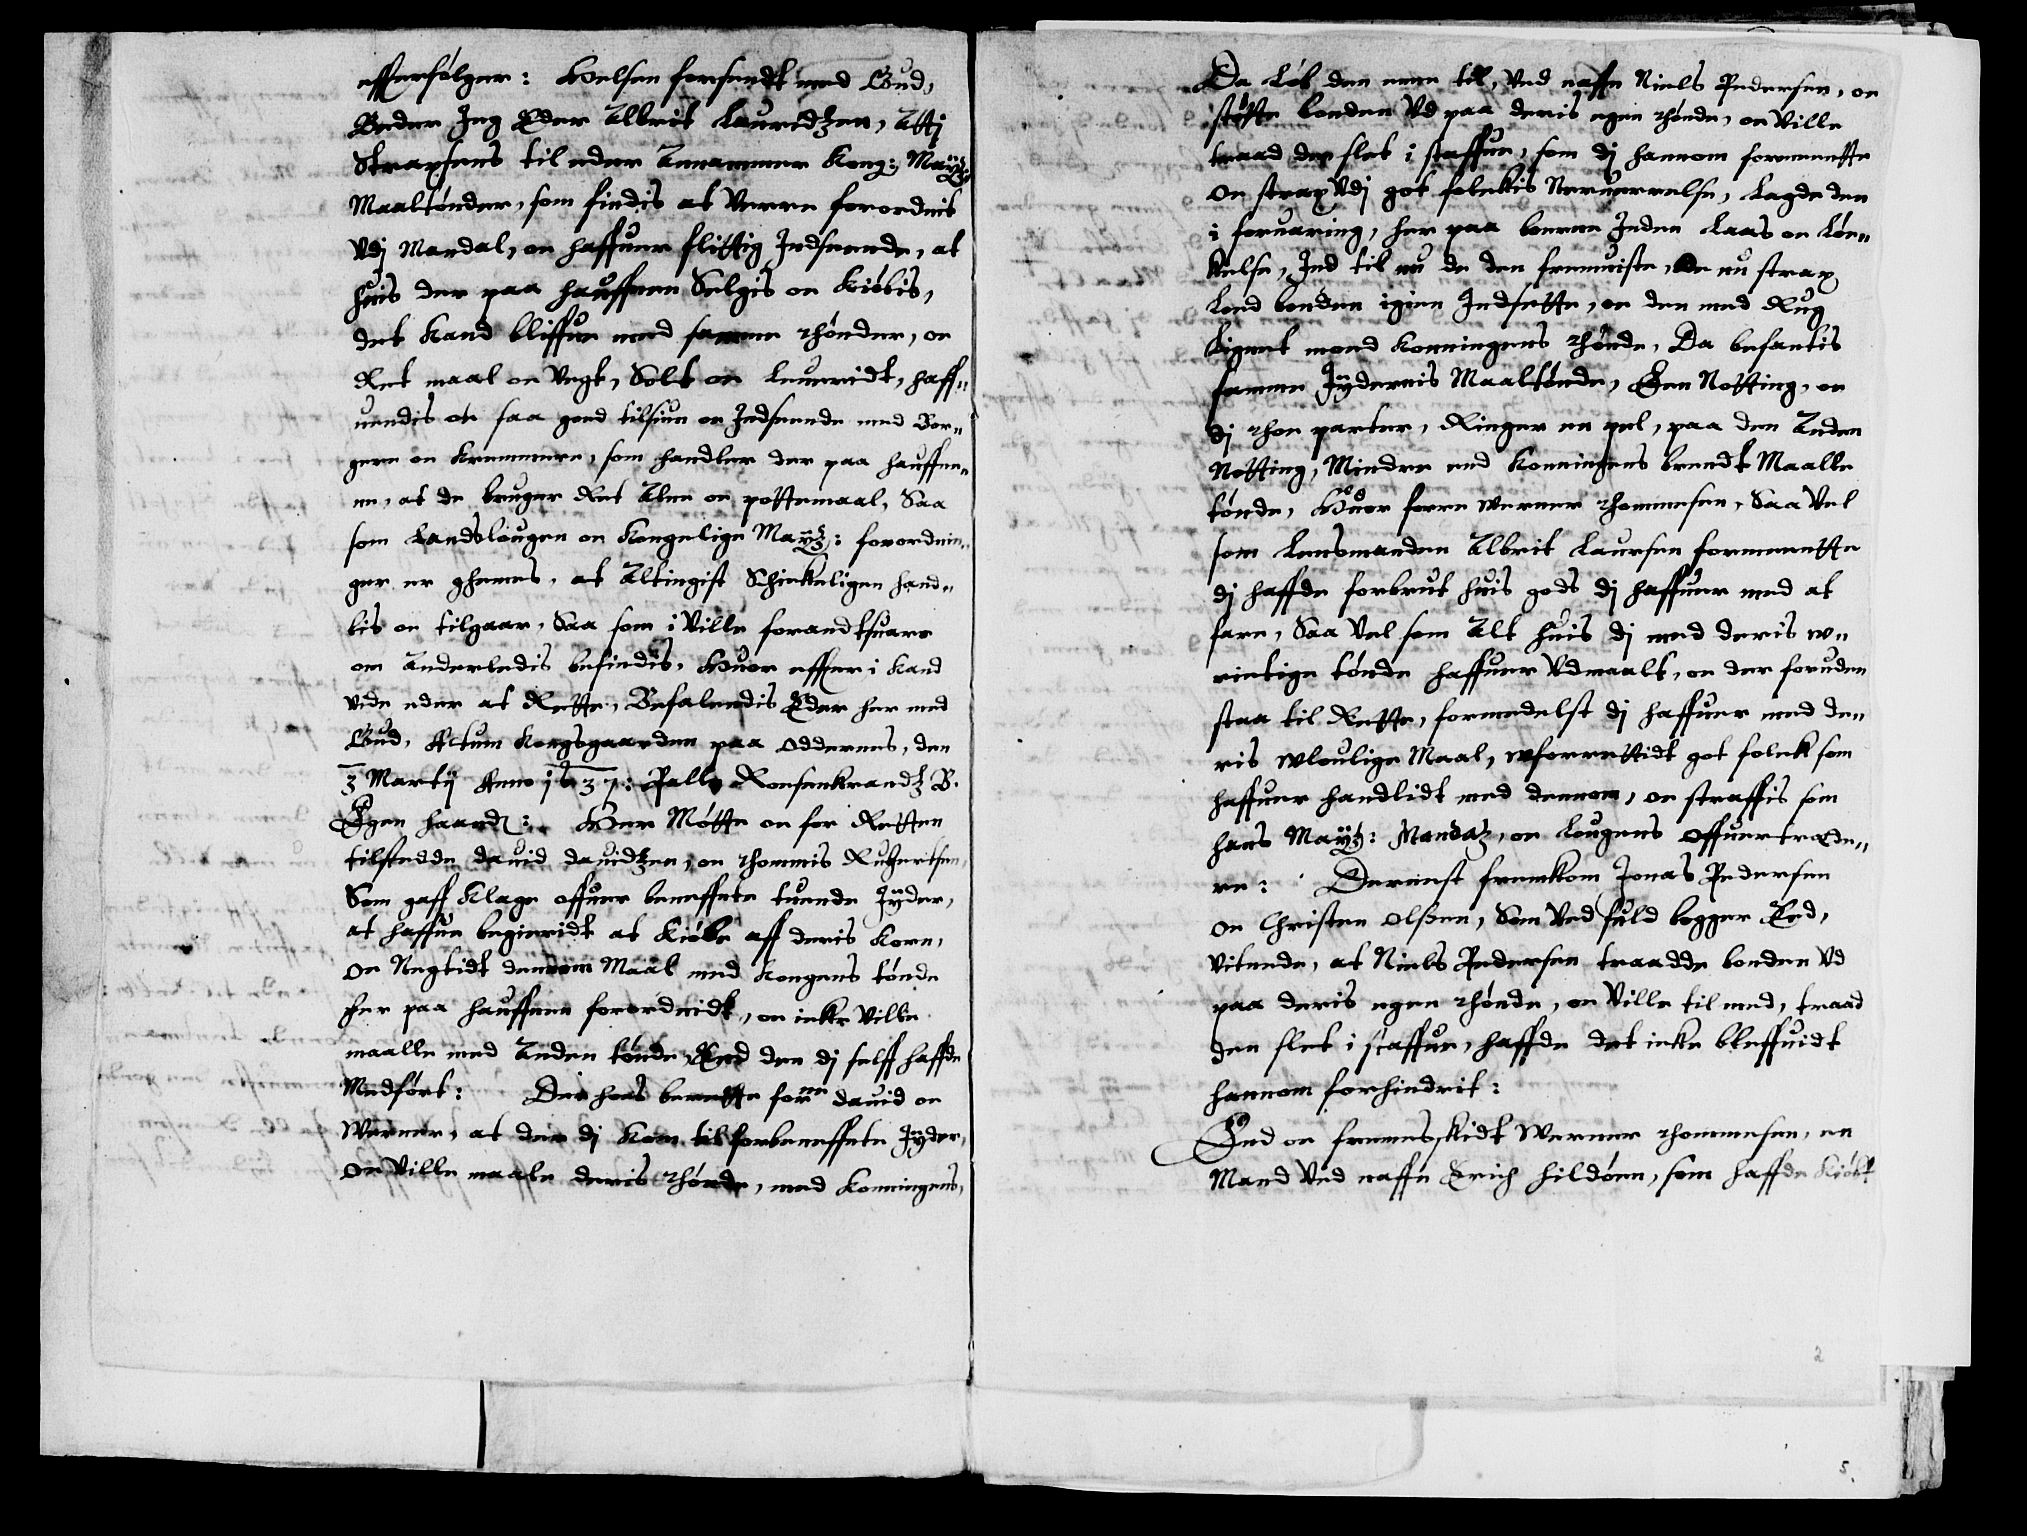 effterfølger: Helsen forsendt med Gud,
Beder Jeg Eder Albrit Lauridtzen, Atti
Straxsens til eder Annammer Kong: Maytz:
Maaltønder, som findis at Verre forordnit
Vdj Mandal, oc haffuer flittig Indseende, at
huis der paa hauffnen Selgis oc Kiøbis,
det Kand bliffue med samme thønder, oc
Ret maal oc Vegt, Solt oc Leueridt, haff„
uendis oc saa god tilsiun oc Indseende med Bor„
gere oc Kremmere, som handler der paa hauffne„
ne, at de bruger Ret Alen oc pottemaal, Saa
som Landslougen oc Kongelige Maytz: forordnin„
ger er gemes, at Altingist Schickeligen hand„
lis oc tilgaar, Saa som i Ville forandtsuare
om Anderledis befindis, Huor effter i Kand
vide eder at Rette, Befalendis Eder her med
Gud, Actum Kongsgaarden paa Odderens, den
3 Martij Anno 1637: Palle Rosenkrandtz B.
Egen haand: Her Møtte oc for Retten
tilstedde dauid dauidtzen, oc thommis Rubertsen,
Som gaff Klage offuer beneffnte tuende Jyder,
at haffue begieridt at Kiøbe aff deris Korn,
oc Negtidt dennom Maal med Kongens tønde
her paa hauffnen forordnidt, oc icke Ville
maalle med Anden tønde End den dj selff haffde
Medført: Der hos berette forne dauid oc
Werner, at der dj Kom til forbeneffnte Jyder,
oc Ville maale deris thønde, med Konningens,
Da Løb den eene til, Ved naffn Niels Pedersen, oc
støtte bonden Vd paa deris egen thønde, oc Ville
traad den slet i staffue, som dj hannom formeente
oc strax Vdj got folckis Neruerrelse, Lagde den
i foruaring, her paa boernn Inden Laas oc Løc„
kelse, Ind til nu de den fremuiste, de nu strax
Lod bonden igien Indsette, oc den med Rug
Ligent mod Konningens thønde, Da befantis
samme Jydernis Maaltønde, Een Notting, oc
dj thoe parter, Ringer en pel, paa den Anden
Notting, Mindre end Konningens brendt Maalle
tønde, Huor forre Werner thommesen, Saa Vel
som Lensmanden Albrit Laursen formeente
dj haffde forbrut huis gods dj haffuer med at
fare, Saa Vel som Alt huis dj med deris w„
rictige tønde haffuer Vdmaalt, oc der foruden
staa til Rette, formedelst dj haffuer med de„
ris wloulige Maal, wforrettidt got folck som
haffuer handlidt med dennom, oc straffis som
hans Maytz: Mandatz, oc Lougens Offuertræde„
re: Dernest fremkom Jonas Pedersen
oc Christen Olßen, Som Ved fuld bogger Eed,
Vitende, at Niels Pedersen traadde bonden Vd
paa deris egen thønde, oc Ville til med, traad
den slet i staffue, haffde det icke bleffuidt
hannom forhindrit:
End oc fremesskidt Werner thommesen, en
Mand Ved naffn Erich hildønn, som haffde Kiøbt
2
5.